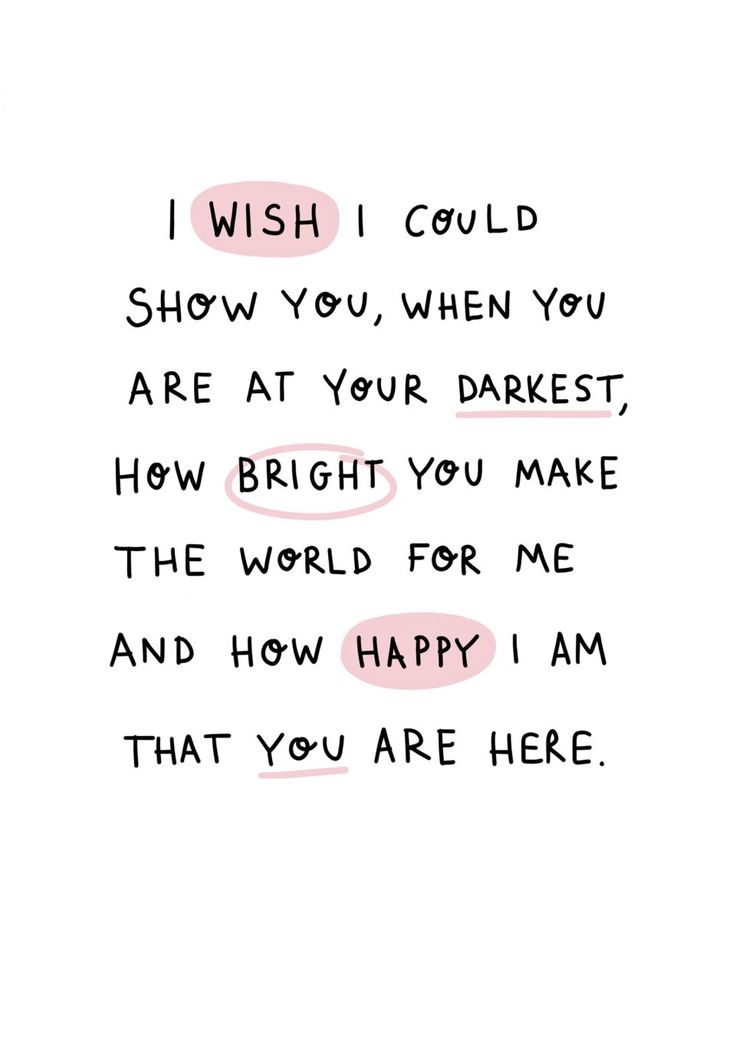 I WISH I COULD
SHOW YOU, WHEN YOU
ARE AT YOUR DARKEST,
HOW BRIGHT YOU MAKE
THE WORLD FOR ME
AND HOW HAPPY I AM
THAT YOU ARE HERE.